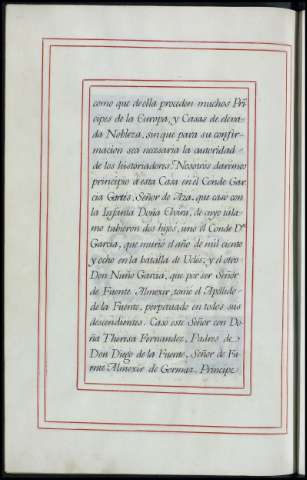 como que de ella proceden muchos Prin
cipes de la Europa, y Casas de eleva-
da Nobleza, sin que para su confir-
macion sea necesaria la autoridad
de los historiadores. Nosotros daremos
principio á esta Casa en el Conde Gar
cia Garcés, Señor de Aza, que casó con
la Infanta Doña Elvira, de cuyo tála-
mo tubieron dos hijos, uno el Conde Dn.
Garcia, que murió el año de mil ciento
y ocho en la batalla de Uclés; y el otro
Don Nuño Garcia, que por ser Señor
de Fuente Almexir, tomó el Apellido
de la Fuente, perpetuado en todos sus
descendientes. Casó este Señor con Do
ña Theresa Fernandez, Padres de
Don Diego de la Fuente, Señor de Fu
ente Almexir de Gormaz, Principe